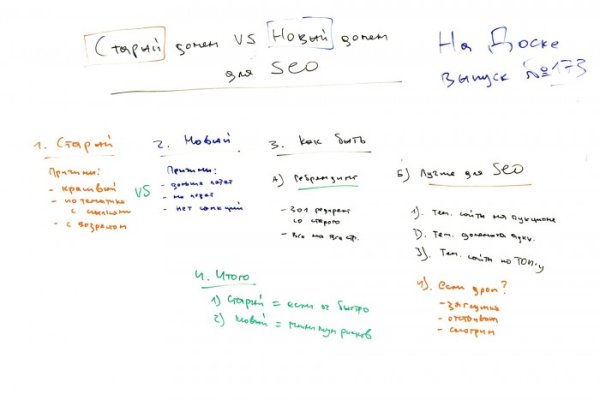 Старый домен VS Новый домен
для SEO
На Доске
выпуск №173
1. Старый
Причины:
- красивый
- по тематике
с ссылками
- с возрастом
VS
2. Новый
Причины:
- дольше
- нет санкций
3. Как быть
А) Ребрендинг
- 301 редирект
со старого
- Все на все стр.
Б) Лучше для SEO
1). Тем. сайты на аукционе
2). Тем. домена аукц.
3). Тем. сайты по ТОП-у
4). Если дроп?
- заглушка
- отстаивать
- смотрим
4. Итого
1) Старый = если ок быстро
2) Новый = минимум рисков